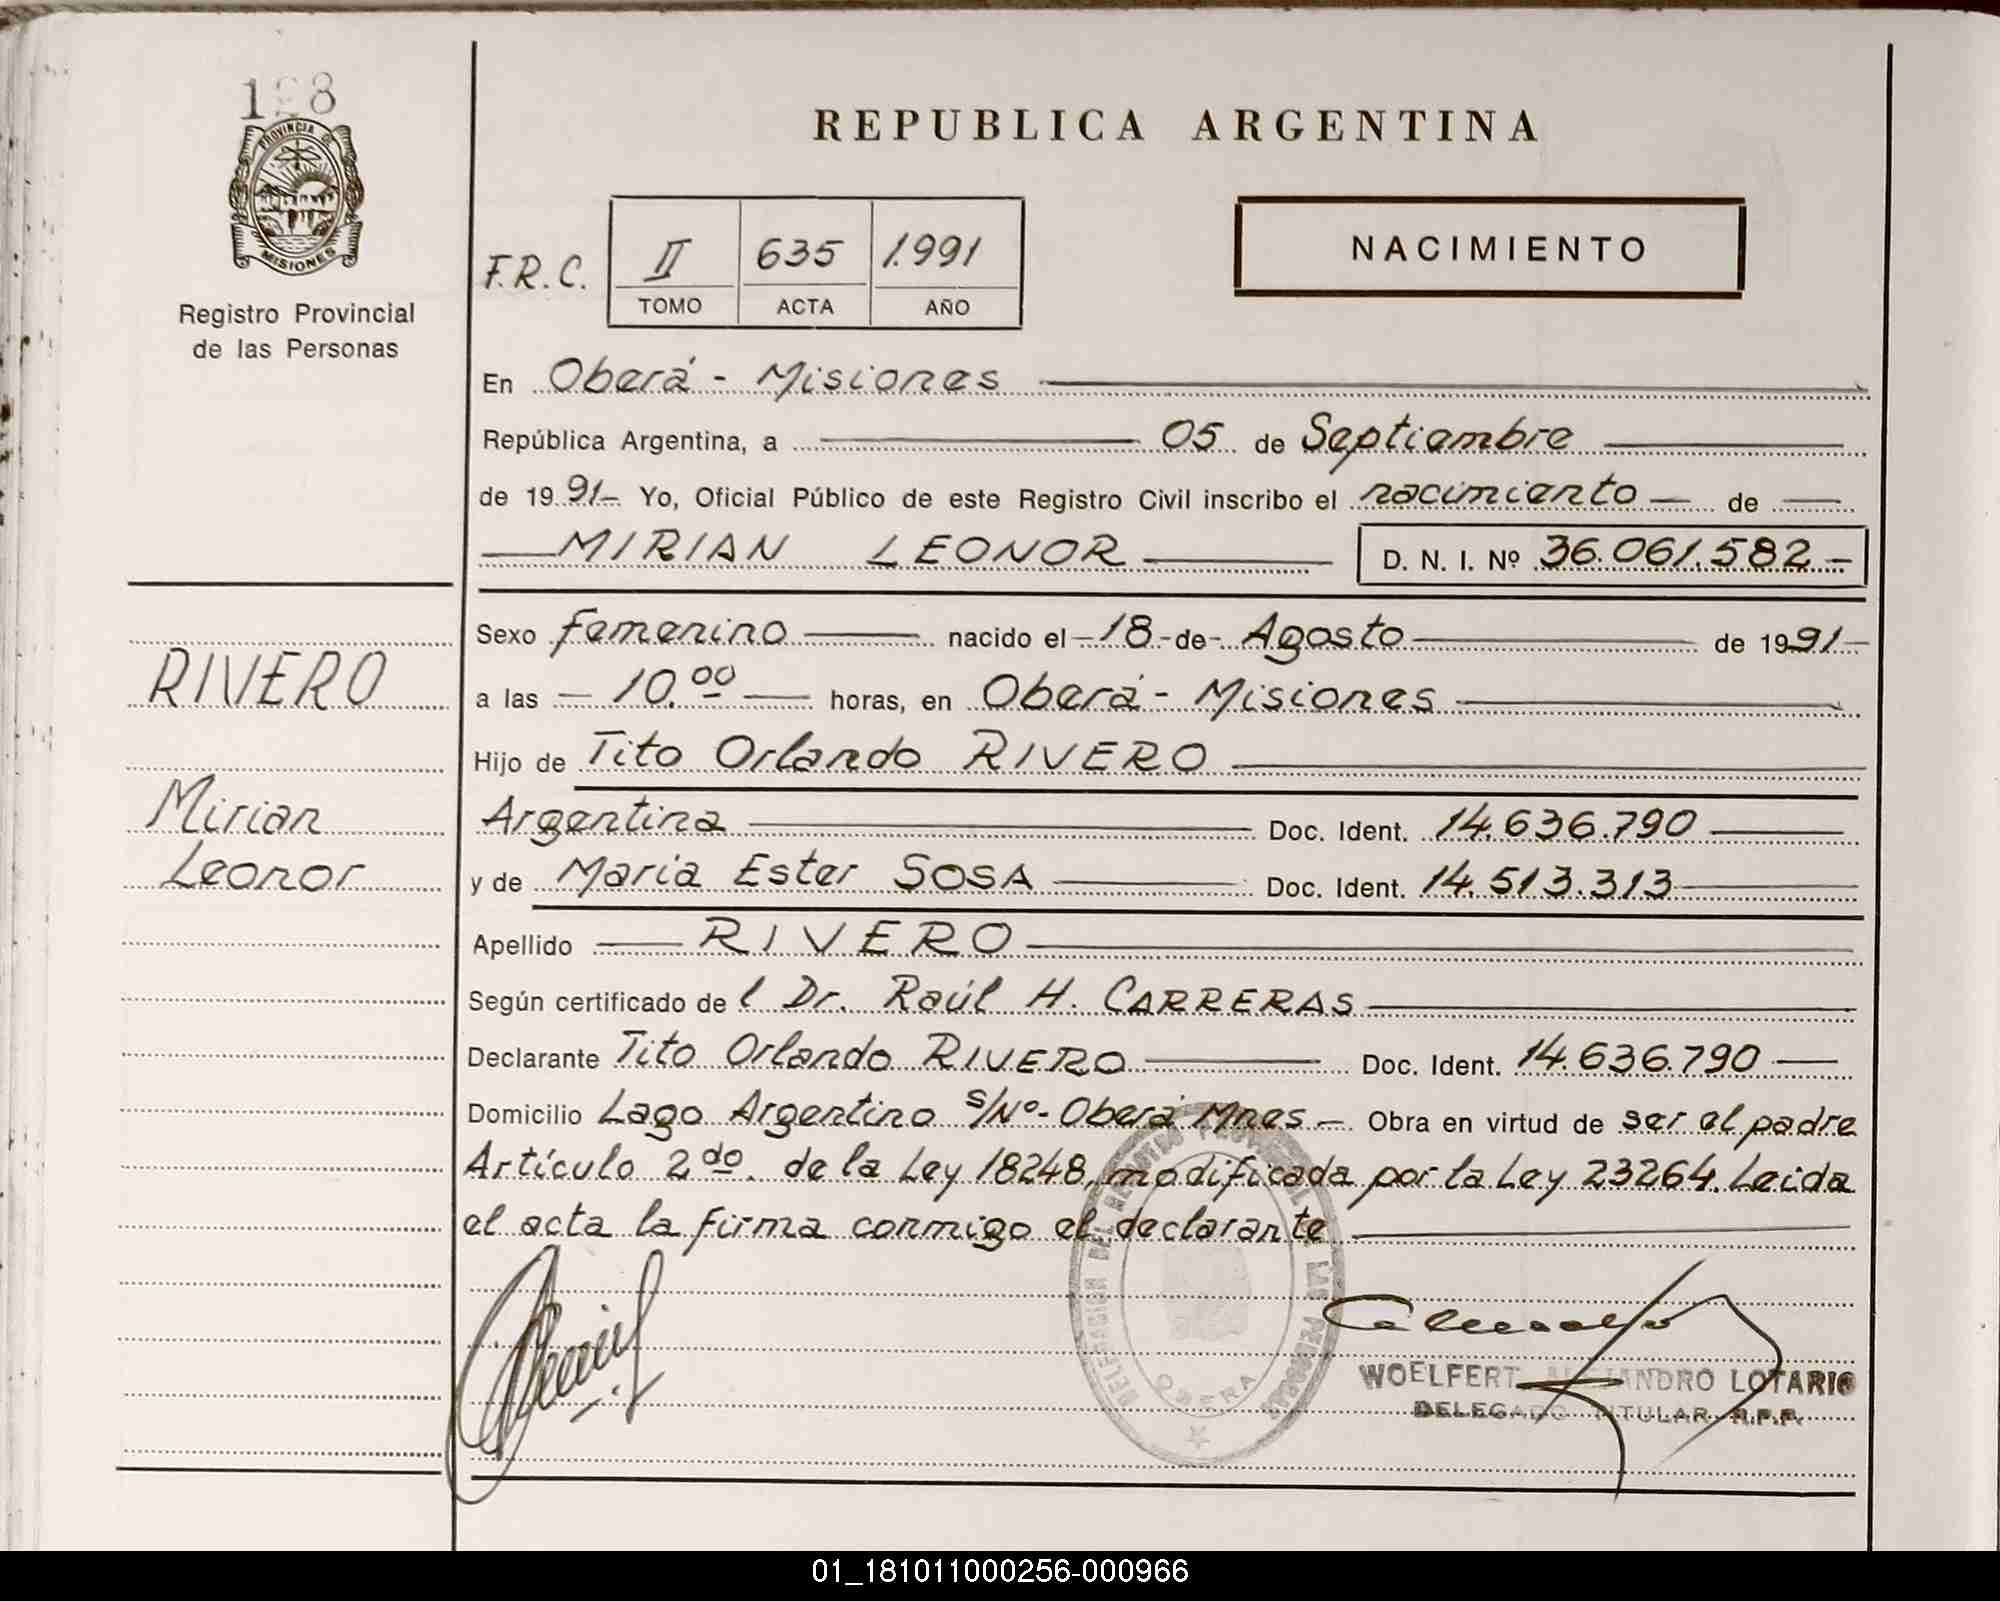 198
PROVINCIA DE
MISIONES
Registro Provincial
de las Personas
REPUBLICA ARGENTINA
NACIMIENTO
F.R.C. II 635 1.991
TOMO ACTA AÑO
En Oberá - Misiones
República Argentina, a 05 de Septiembre
de 1991- Yo, Oficial Público de este Registro Civil inscribo el nacimiento de
MIRIAN LEONOR D. N. I. Nº 36.061.582-
RIVERO
Mirian
Leonor
Sexo femenino nacido el 18 de Agosto de 1991-
a las 10.00 horas, en Oberá - Misiones
Hijo de Tito Orlando RIVERO
Argentina Doc. Ident. 14.636.790
y de Maria Ester SOSA Doc. Ident. 14.513.313
Apellido RIVERO
Según certificado de l Dr. Raúl H. CARRERAS
Declarante Tito Orlando RIVERO Doc. Ident. 14.636.790
Domicilio Lago Argentino s/Nº- Oberá Mnes - Obra en virtud de ser el padre
Artículo 2do. de la Ley 18248, modificada por la Ley 23264. Leida
el acta la firma conmigo el declarante
DELEGACION DEL REGISTRO PROVINCIAL DE LAS PERSONAS
OBERA
WOELFERT ALEJANDRO LOTARIO
DELEGADO TITULAR R.P.P.
01_181011000256-000966